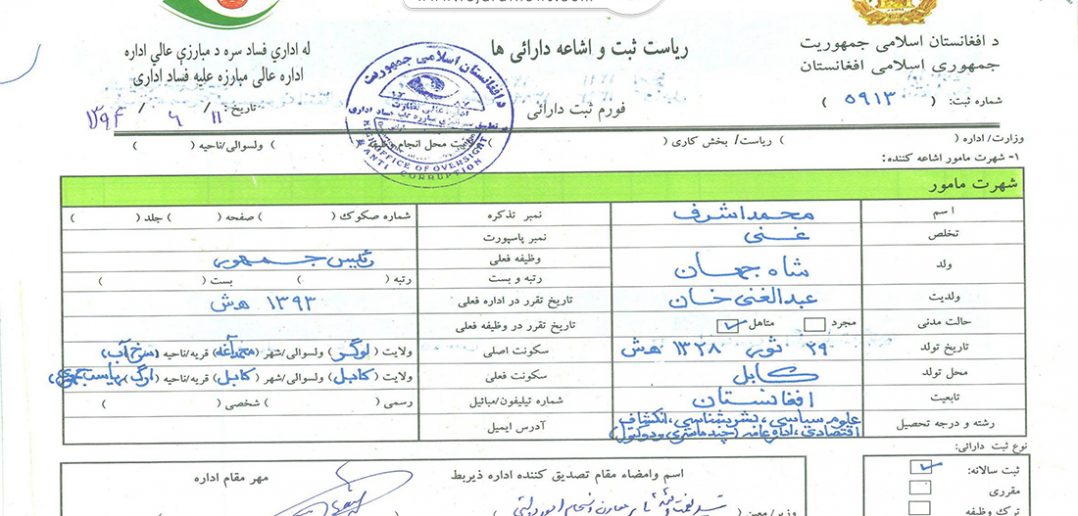 د افغانستان اسلامی جمهوریت
جمهوری اسلامی افغانستان
شماره ثبت: ( ۵۹۱۳۰ )
ریاست ثبت و اشاعه دارائی ها
فورم ثبت دارائی
له اداري فساد سره د مبارزې عالي اداره
اداره عالی مبارزه علیه فساد اداری
تاریخ: ۱۱ / ۶ / ۱۳۹۴
د افغانستان اسلامی جمهوریت
HIGH OFFICE OF OVERSIGHT
ANTI CORRUPTION
وزارت/ اداره ( ) ریاست/ بخش کاری ( ) محل انجام ( ) ولسوالی/ناحیه ( )
۱- شهرت مامور اشاعه کننده:
شهرت مامور
اسم محمد اشرف نمبر تذکره شماره صکوک ( ) صفحه ( ) جلد ( )
تخلص غنی نمبر پاسپورت
وظیفه فعلی رئیس جمهور
ولد شاه جهان رتبه و بست رتبه ( ) بست ( )
ولدیت عبدالغنی خان تاریخ تقرر در اداره فعلی ۱۳۹۳ هـ ش
حالت مدنی مجرد متاهل تاریخ تقرر در وظیفه فعلی
تاریخ تولد ۲۹ ثور ۱۳۲۸ هـ ش سکونت اصلی ولایت (لوگر) ولسوالی/شهر (محمد آغه) قریه/ناحیه (سرخ آب)
محل تولد کابل سکونت فعلی ولایت (کابل) ولسوالی/شهر (کابل) قریه/ناحیه (ارگ ریاست جمهوری)
تابعیت افغانستان شماره تیلیفون/مبائیل رسمی ( ) شخصی ( )
رشته و درجه تحصیل علوم سیاسی، بشرشناسی، انکشاف
اقتصادی، اداره عامه (چند ماستری و دوکتورا) آدرس ایمیل
نوع ثبت دارائی:
ثبت سالانه:
مقرری
ترک وظیفه
اسم وامضاء مقام تصدیق کننده اداره ذیربط
مهر مقام اداره
وزیر/معین